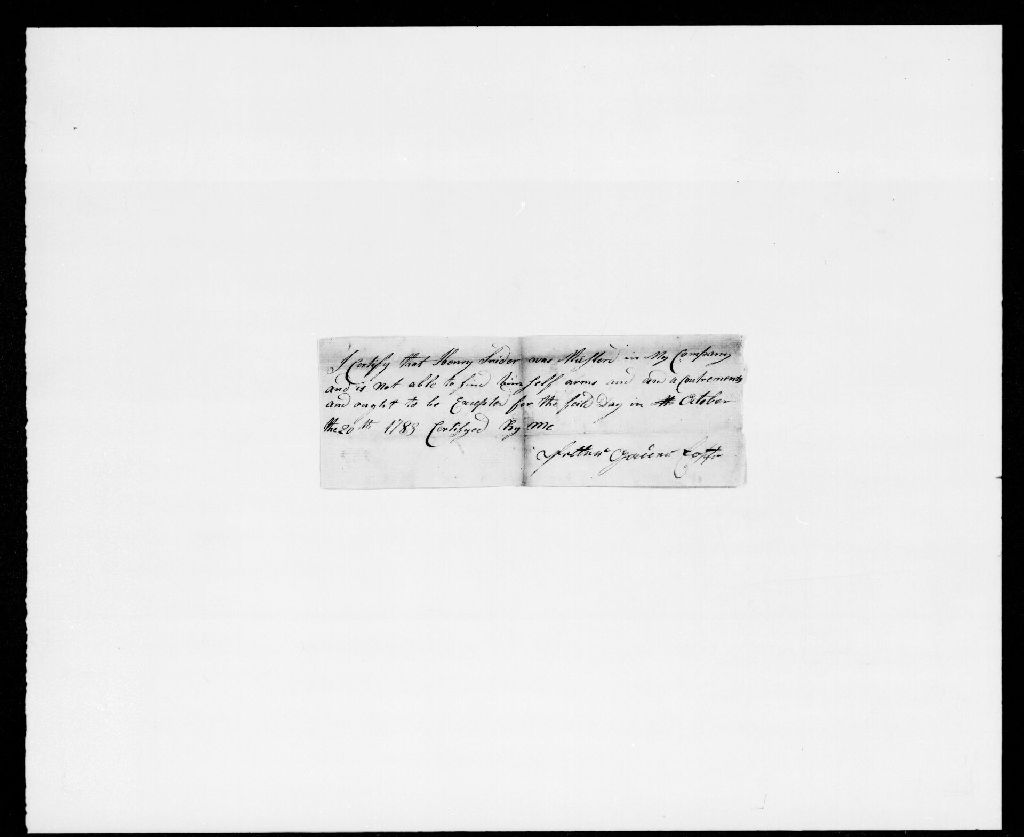 I Certify that Henry Snider was Musterd in My Company
and is not able to find himself arms and an acoutrements
and ought to be Excepted for the said Day in October
the 20th 1783 Certifyed By me
Captn